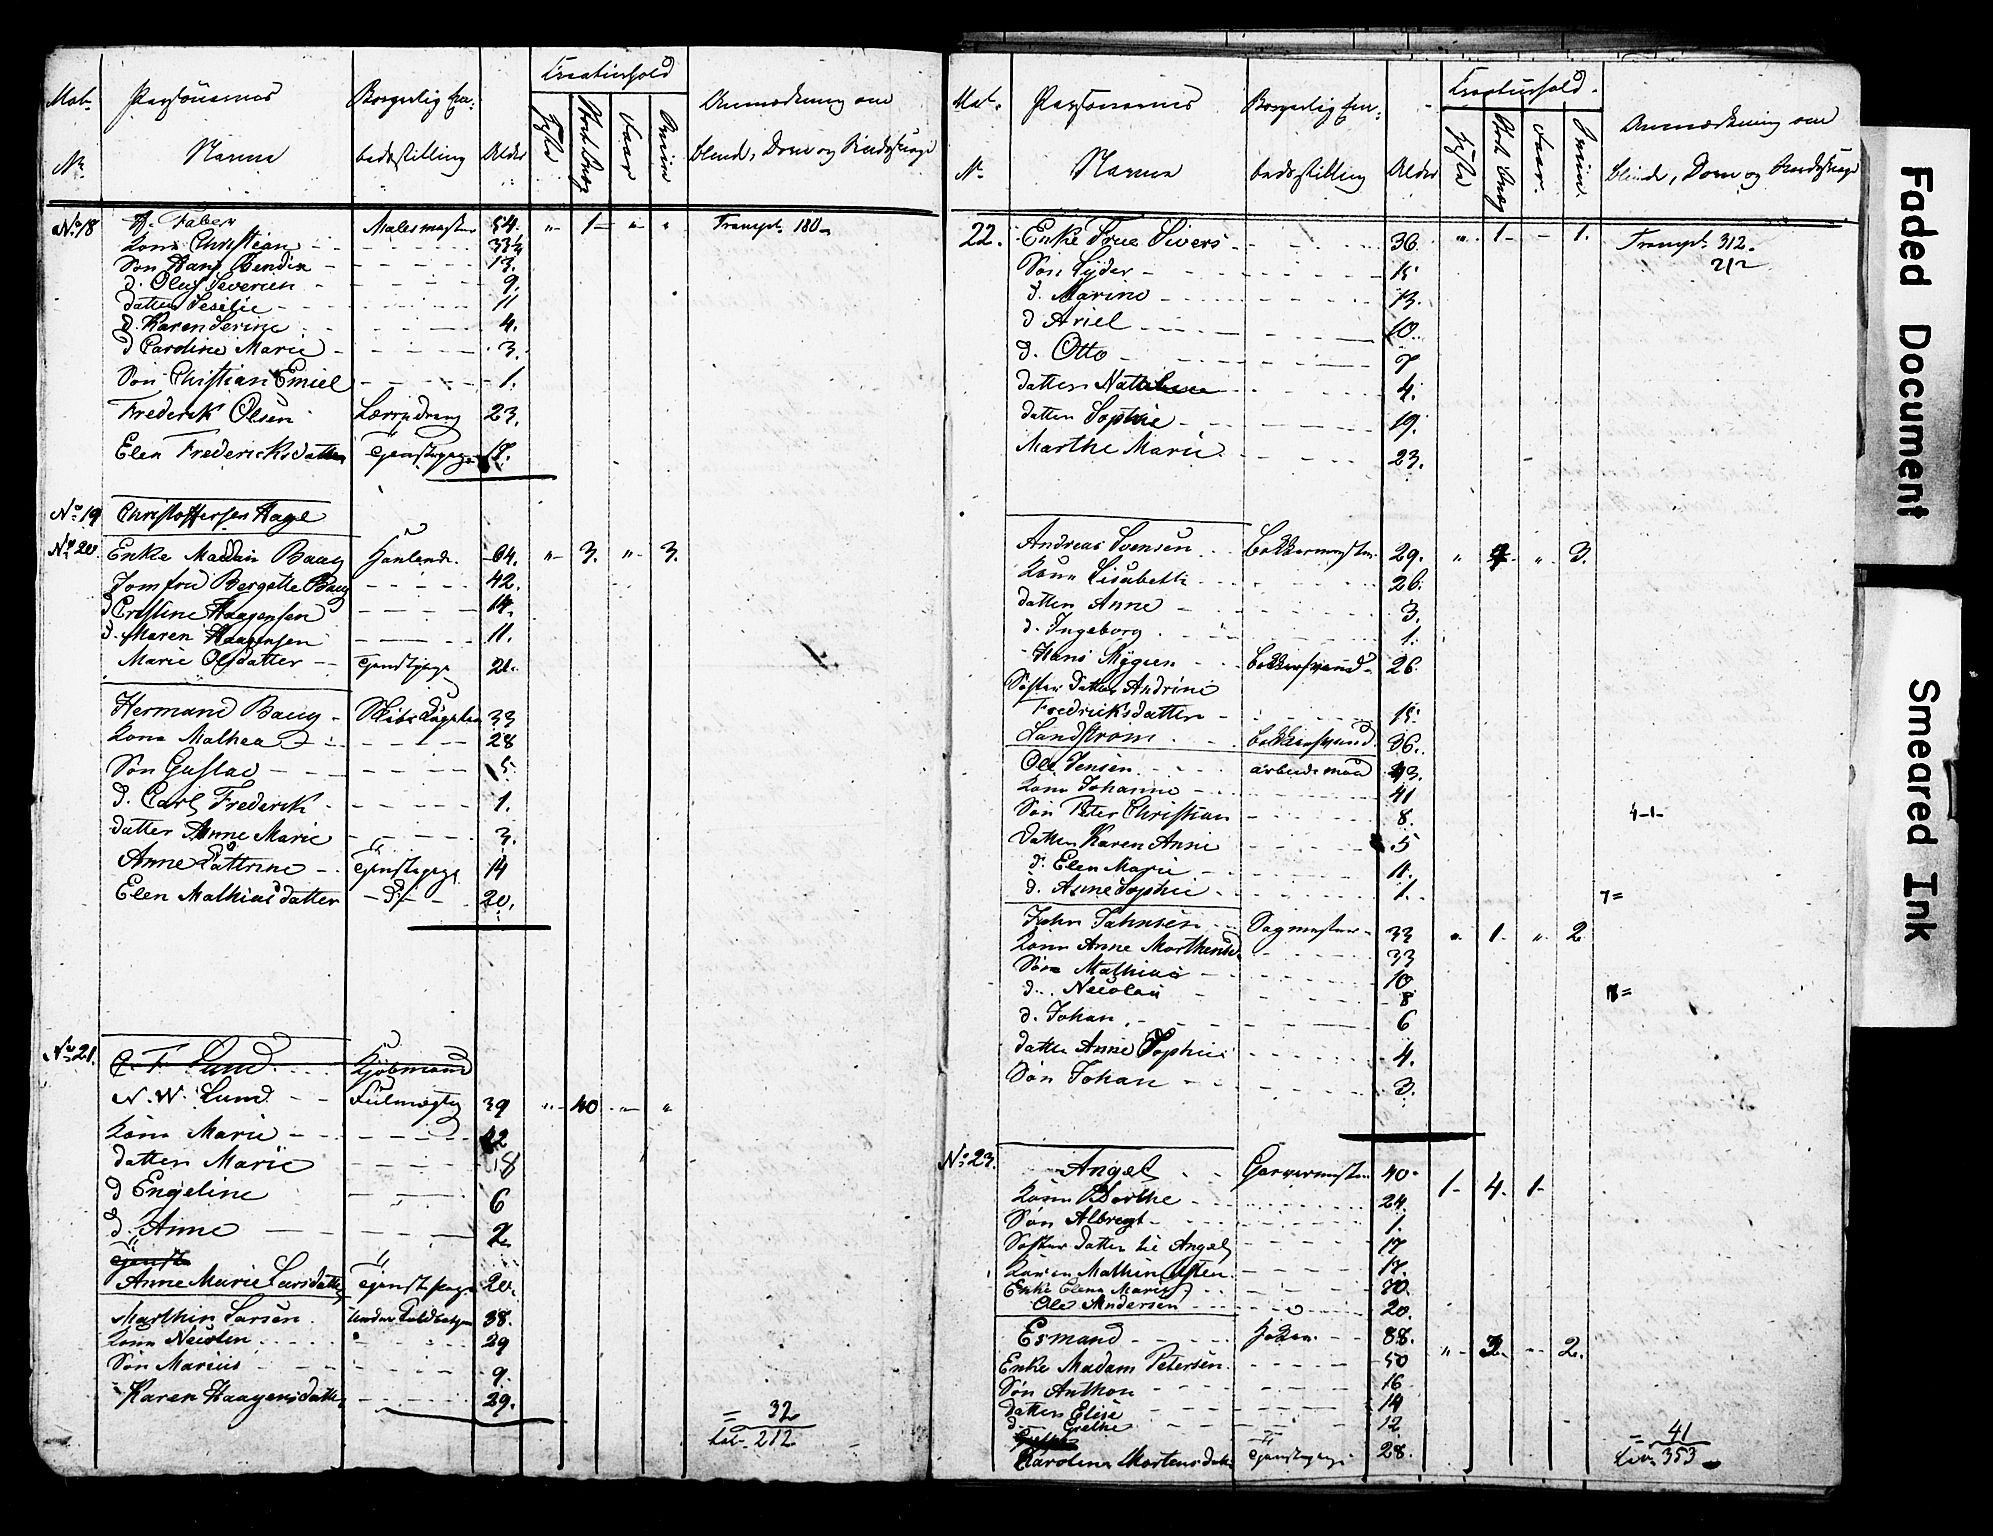 Mat. Personernes Borgerlig Em- Creaturhold Anmærkning om
No Navne bedsstilling Alder Heste Stort Qvæg Faar Sviin blinde, Døve og Sindssvage
No 18 H. Faber Malermester 54. " 1 - " " Transpt. 180
Kone Christian 33½
Søn Hans Bendix 13.
d. Oluf Severien 9.
datter Sesilie 11
d. Karen Serine 4.
d Caroline Marie 3.
Søn Christian Emiel 1.
Frederik Olsen Lærrydreng 23.
Elen Fredericksdatter Tjenstepige 17.
No 19 Christoffersen Hage
No 20 Enke Madam Baug Handlende 64. " 3. " 3.
Jomfru Bergette Baug 42.
d Cristine Haagensen 14.
d. Maren Haagensen 11.
Marie Olsdatter Tjenstepige 21.
Hermand Baug Skibs Captein 33
Kone Mathea 28
Søn Gustav 5
d. Carl Frederik 1.
datter Anne Marie 3.
Anne Cattrine Tjenstepige 14
Elen Mathiasdatter d 20.
No 21. C. F. Lund Kjøbmand
N. W. Lund Fulmægtig 39 " 40 " "
Kone Marie 22
datter Marie 8
d Engeline 6
d. Anne 2
tjenst
Anne Marie Larsdatter Tjenstepige 20.
Marthin Larsen Under Toldbetjen 38.
Kone Nicolin 29
Søn Marius 9.
Karen Haagensdatter 29.
= 32
Lat. 212
Mat. Personernes Borgerlig Em- Creaturhold Anmærkning om
N. Navne bedsstilling Alder Heste Stort Qvæg Faar. Sviin. blinde, Døve og Sindssvage
22. Enke Frue Sivers 36 " 1 - - 1. Transpt. 312.
212
Søn Lyder 15
d. Marino 13.
d Ariel 10.
d. Otto 7
datter Nattaline 4.
datter Sophie 19.
Marthe Marie 23.
Andreas Svensen Bakkermester 29. " " 3.
Kone Lisabeth 26.
datter Anne 3.
d. Ingeborg 1.
Hans Mygren bakkersvend 26
Søster datter Andrine
Fredriksdatter 15
Landstrom bakkersvend 36.
Ole Jensen arbeidsmand 43.
Kone Johanne 41
Søn Peter Christian 8. 4-1-
datter Karen Anne 5
d. Elen Marie 11.
d. Anne Sophie 1. 7=
John Jahnsen Sagmester 33 " 1. " 2
Kone Anne Marthea 33
Søn Mathias 10
d. Nicolai 8
d. Johan 6
datter Anne Sophie 4.
Søn Johan 3.
No 23. Angel Garvermester 40. 1- 4. 1-
Kone Dorthe 24.
Søn Albregt 1.
Søster datter til Angel 17
Karen Mathia Olsen 17.
Enke Elena Marie 70.
Ole Andersen 20.
Esmand 88. " 2. 2.
Enke Madam Petersen 50
Søn Anthon 16
datter Elise 14
d. Grethe 12
Carolina Mortensdatter Tjenstepige 28.
= 41
353
Faded Document
Smeared Ink